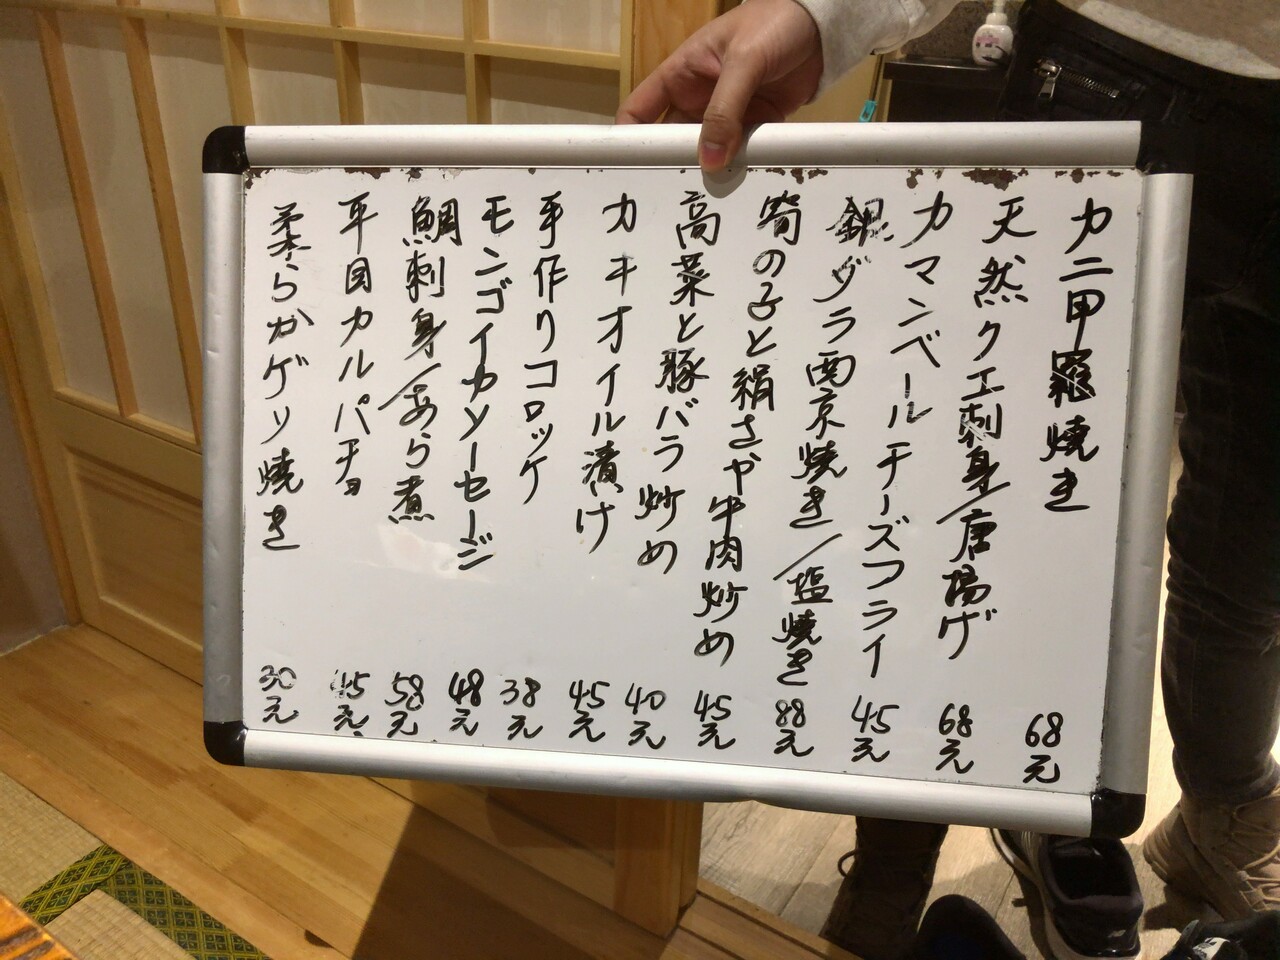 カニ甲羅焼き 68元
天然クエ刺身/唐揚げ 68元
カマンベールチーズフライ 45元
銀ダラ西京焼き/塩焼き 88元
筍の子と絹さや牛肉炒め 45元
高菜と豚バラ炒め 40元
カキオイル漬け 45元
手作りコロッケ 38元
モンゴイカソーセージ 48元
鯛刺身/あら煮 58元
平目カルパチョ 45元
柔らかゲソ焼き 30元